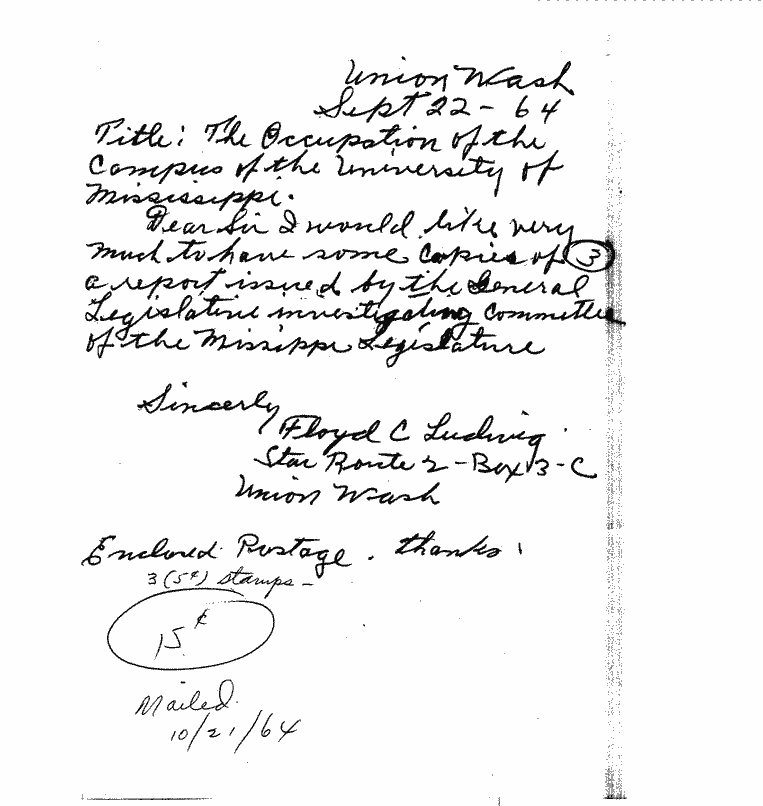 Union Wash
Sept 22 - 64
Title: The Occupation of the
Campus of the University of
Mississippi.
Dear Sir I would like very
much to have some copies of 3
a report issued by the General
Legislative investigating Committee
of the Missippi Legislature
Sincerly
Floyd C Ludwig
Star Route 2 - Box 3-C
Union Wash
Enclosed Postage. thanks!
3 (5¢) stamps -
15¢
Mailed
10/21/64